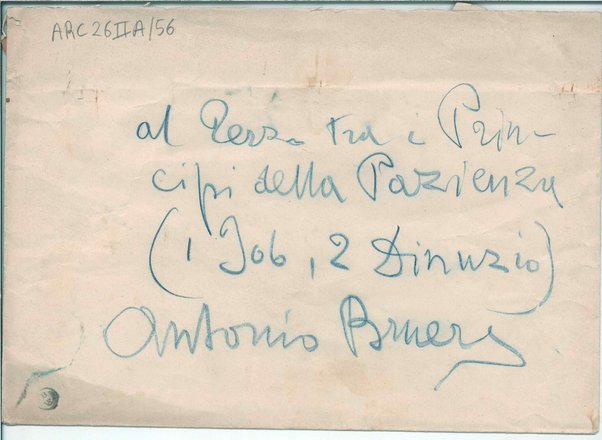 ARC 26 II A/56
al Terzo tra i Prin-
cipi della Pazienza
(1 Job, 2 Dinuzio)
Antonio Bruers